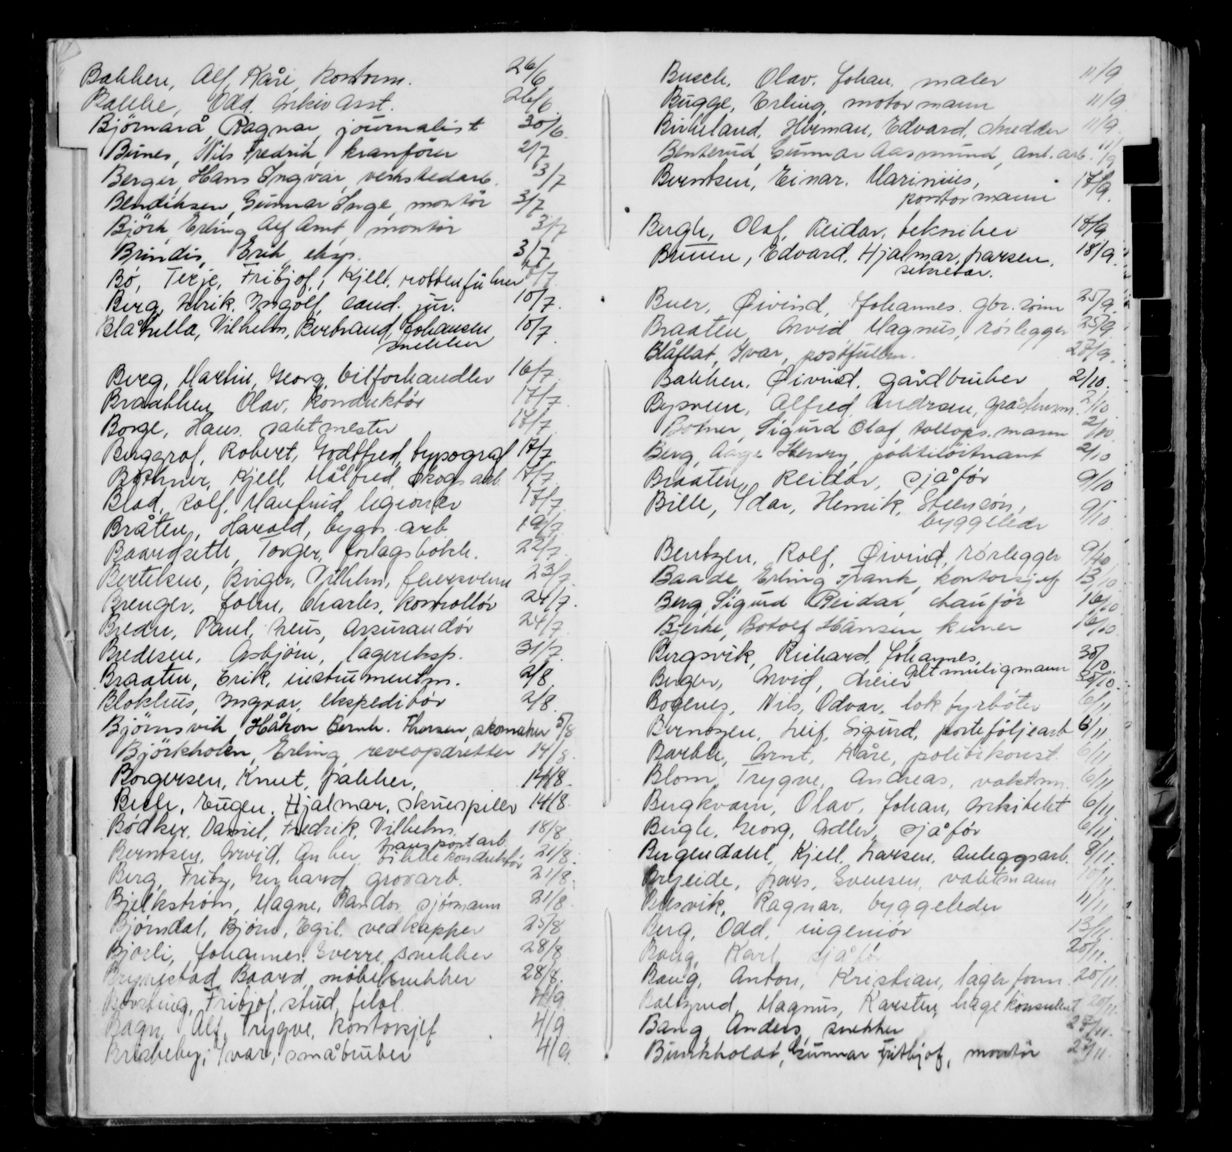 Bakken, Alf Kåre, kontorm. 26/6
Bakke, Odd, Arkiv Asst. 26/6
Bjørnarå Ragnar, journalist 30/6
Bunes, Nils Fredrik, kranfører 2/7
Berger, Hans Ingvar, verkstedarb. 3/7
Bendiksen, Gunnar Inge, montör 3/7
Björk Erling Alf Arnt, montör 3/7
Brundis, Erik, eksp. 3/7
Bø, Terje, Fritjof, Kjell, rottenführer 7/7
Berg, Ulrik, Ingolf, cand. jur. 10/7
Blåhella, Vilhelm, Hertrand, Johansen 10/7
snekker
Berg, Martin, Georg, bilforhandler 16/7
Braathen, Olav, konduktör 17/7
Borge, Hans, salt mester 17/7
Berggraf, Robert, Godtfred, typograf 17/7
Kjell Målfred, Skogsarb 17/7
Blad, Rolf, Manfred, legionær 17/7
Bråten, Harald, bygn. arb. 19/7
Baardseth, Torger, forlagsbokh. 22/7
Bertelsen, Birger, Vilhelm, feiersvenn 23/7
Brenger, John, Charles, kontrollör 24/7
Bredu, Paul, Assurandör 24/7
Bredesen, Asbjörn, lagereksp. 31/7
Braaten, Erik, instrumentm. 2/8
Ingvar, ekspeditör 2/8
Bjørnsvik, Håkon Bernh. Thorsen, skomaker 5/8
Björkholen, Erling, reveopdretter 14/8
Borgersen, Knut, 14/8
Eugen, Hjalmar, skuespiller 14/8
Bödker, Daniel, Fredrik, Vilhelm. 18/8
transportarb
Berntsen, Arvid, billettkonduktør 21/8.
Berg, Fritz, Gerhard, grovarb. 21/8
Bjelkström, Magne, Randor, sjömann 21/8
Bjørndal, Bjørn, Egil, vedkapper 25/8
Bjorli, Johannes, Sverre, snekker 28/8
Brynestad, Baard, møbelsnekker 28/8.
Fritjof, stud. filol. 4/9
Bagn, Alf, Trygve, kontorsjef 4/9
Ivar, småbruker 4/9.
Busch, Olav, Johan, maler 11/9
Bugge, Erling, motormann 11/9
Birkeland, Herman, Edvard, snekker 11/9.
Benterud, Gunnar Aasmund, anl. arb. 11/9
Berntsen, Einar, Marinius, 17/9.
kontormann
Bergh, Olaf, Reidar, tekniker 18/9
Bruun, Edvard, Hjalmar, Larsen, 18/9.
sekretær.
Buer, Øivind, Johannes, 25/9
Braaten, Arvid Magnus, rörlegger 25/9.
Blåflat, Ivar, postfullm. 27/9.
Bakken, Øivind, gårdbruker 2/10.
Alfred, Andrsen, 2/10
Bömer, Sigurd Olaf, mann 2/10
Berg, Aage, Henry, politilöitnant 2/10
Braaten, Reidar, sjåfør 9/10
Bille, Idar, Henrik, Steensön, 9/10.
byggeleder
Bentzen, Rolf, Øivind, rörlegger 9/10
Baade, Erling Frank, kontorsjef 13/10
Berg, Sigurd Reidar, chauför 16/10
Bjerke, Botolf Hansen, kemner 16/10.
Bergsvik, Richard, Johannes, 30/10
altmuligmann
Berger, Arvid, dreier 30/10.
Bogenes, Nils, Odvar, lok. fyrböter 6/11
Berntzen, Leif, Sigurd, porteföljearb 6/11
Arnt, Kåre, politikonst. 6/11
Blom, Trygve, Andreas, vaktm. 6/11
Bergkvam, Olav, Johan, Arkitekt 6/11
Bergh, Georg, Adler, sjåför 6/11.
Bergendahl, Kjell, Larsen, Anleggsarb. 8/11.
Lars, Svensen, vaktmann 10/11
Ragnar, byggeleder 11/11
Berg, Odd, ingeniör 13/11.
Bang, Karl, sjåfør 20/11.
Bang, Anton, Kristian, lagerform. 20/11.
Magnus, Karsten, hagekonsulent 20/11.
Bang Anders, snekker 27/11.
Bunkholdt, Gunnar Fritjof, montör 27/11.